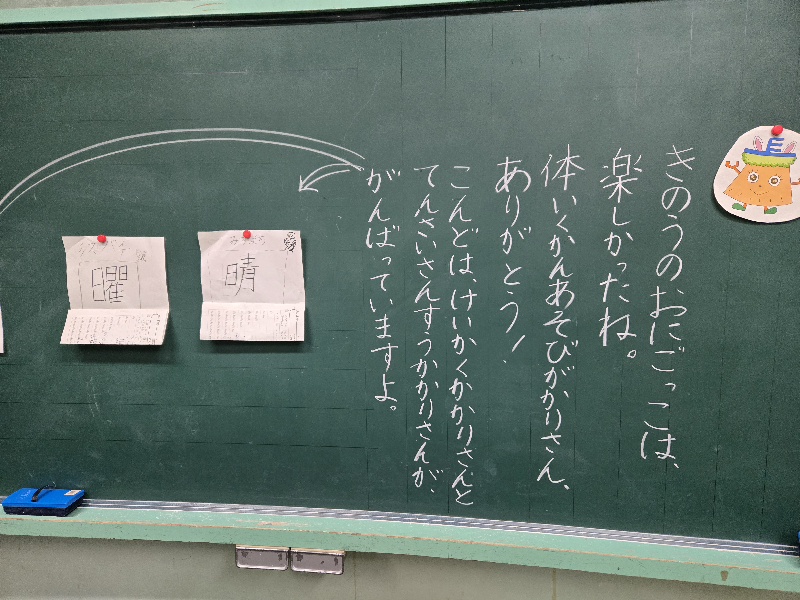 きのうのおにごっこは、
楽しかったね。
体いくかんあそびがかりさん、
ありがとう!
こんどは、けいかくかかりさんと
てんさいさんすうかかりさんが、
がんばっていますよ。
晴
曜